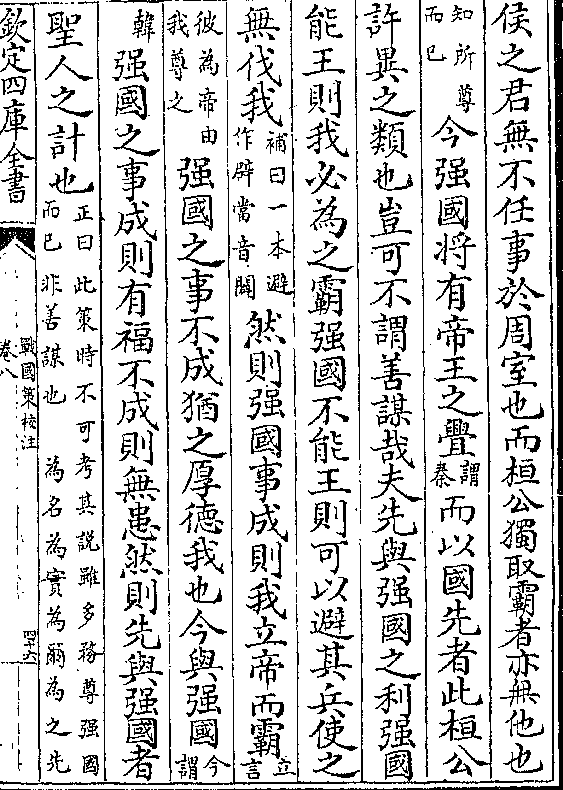 侯之君無不任事於周室也而桓公獨取霸者亦無他也
知所尊而已今强國將有帝王之舋謂秦而以國先者此桓公
許異之類也豈可不謂善謀哉夫先與强國之利强國
能王則我必為之霸强國不能王則可以避其兵使之
無伐我補曰一本避作辟當音闢然則强國事成則我立帝而霸立言
彼為帝由我尊之强國之事不成猶之厚德我也今與强國今謂
韓强國之事成則有福不成則無患然則先與强國者
聖人之計也正曰此策時不可考其說雖多務尊强國而已非善謀也為名為實為爾為之先
欽定四庫全書
戰國策校注
卷八
四十六